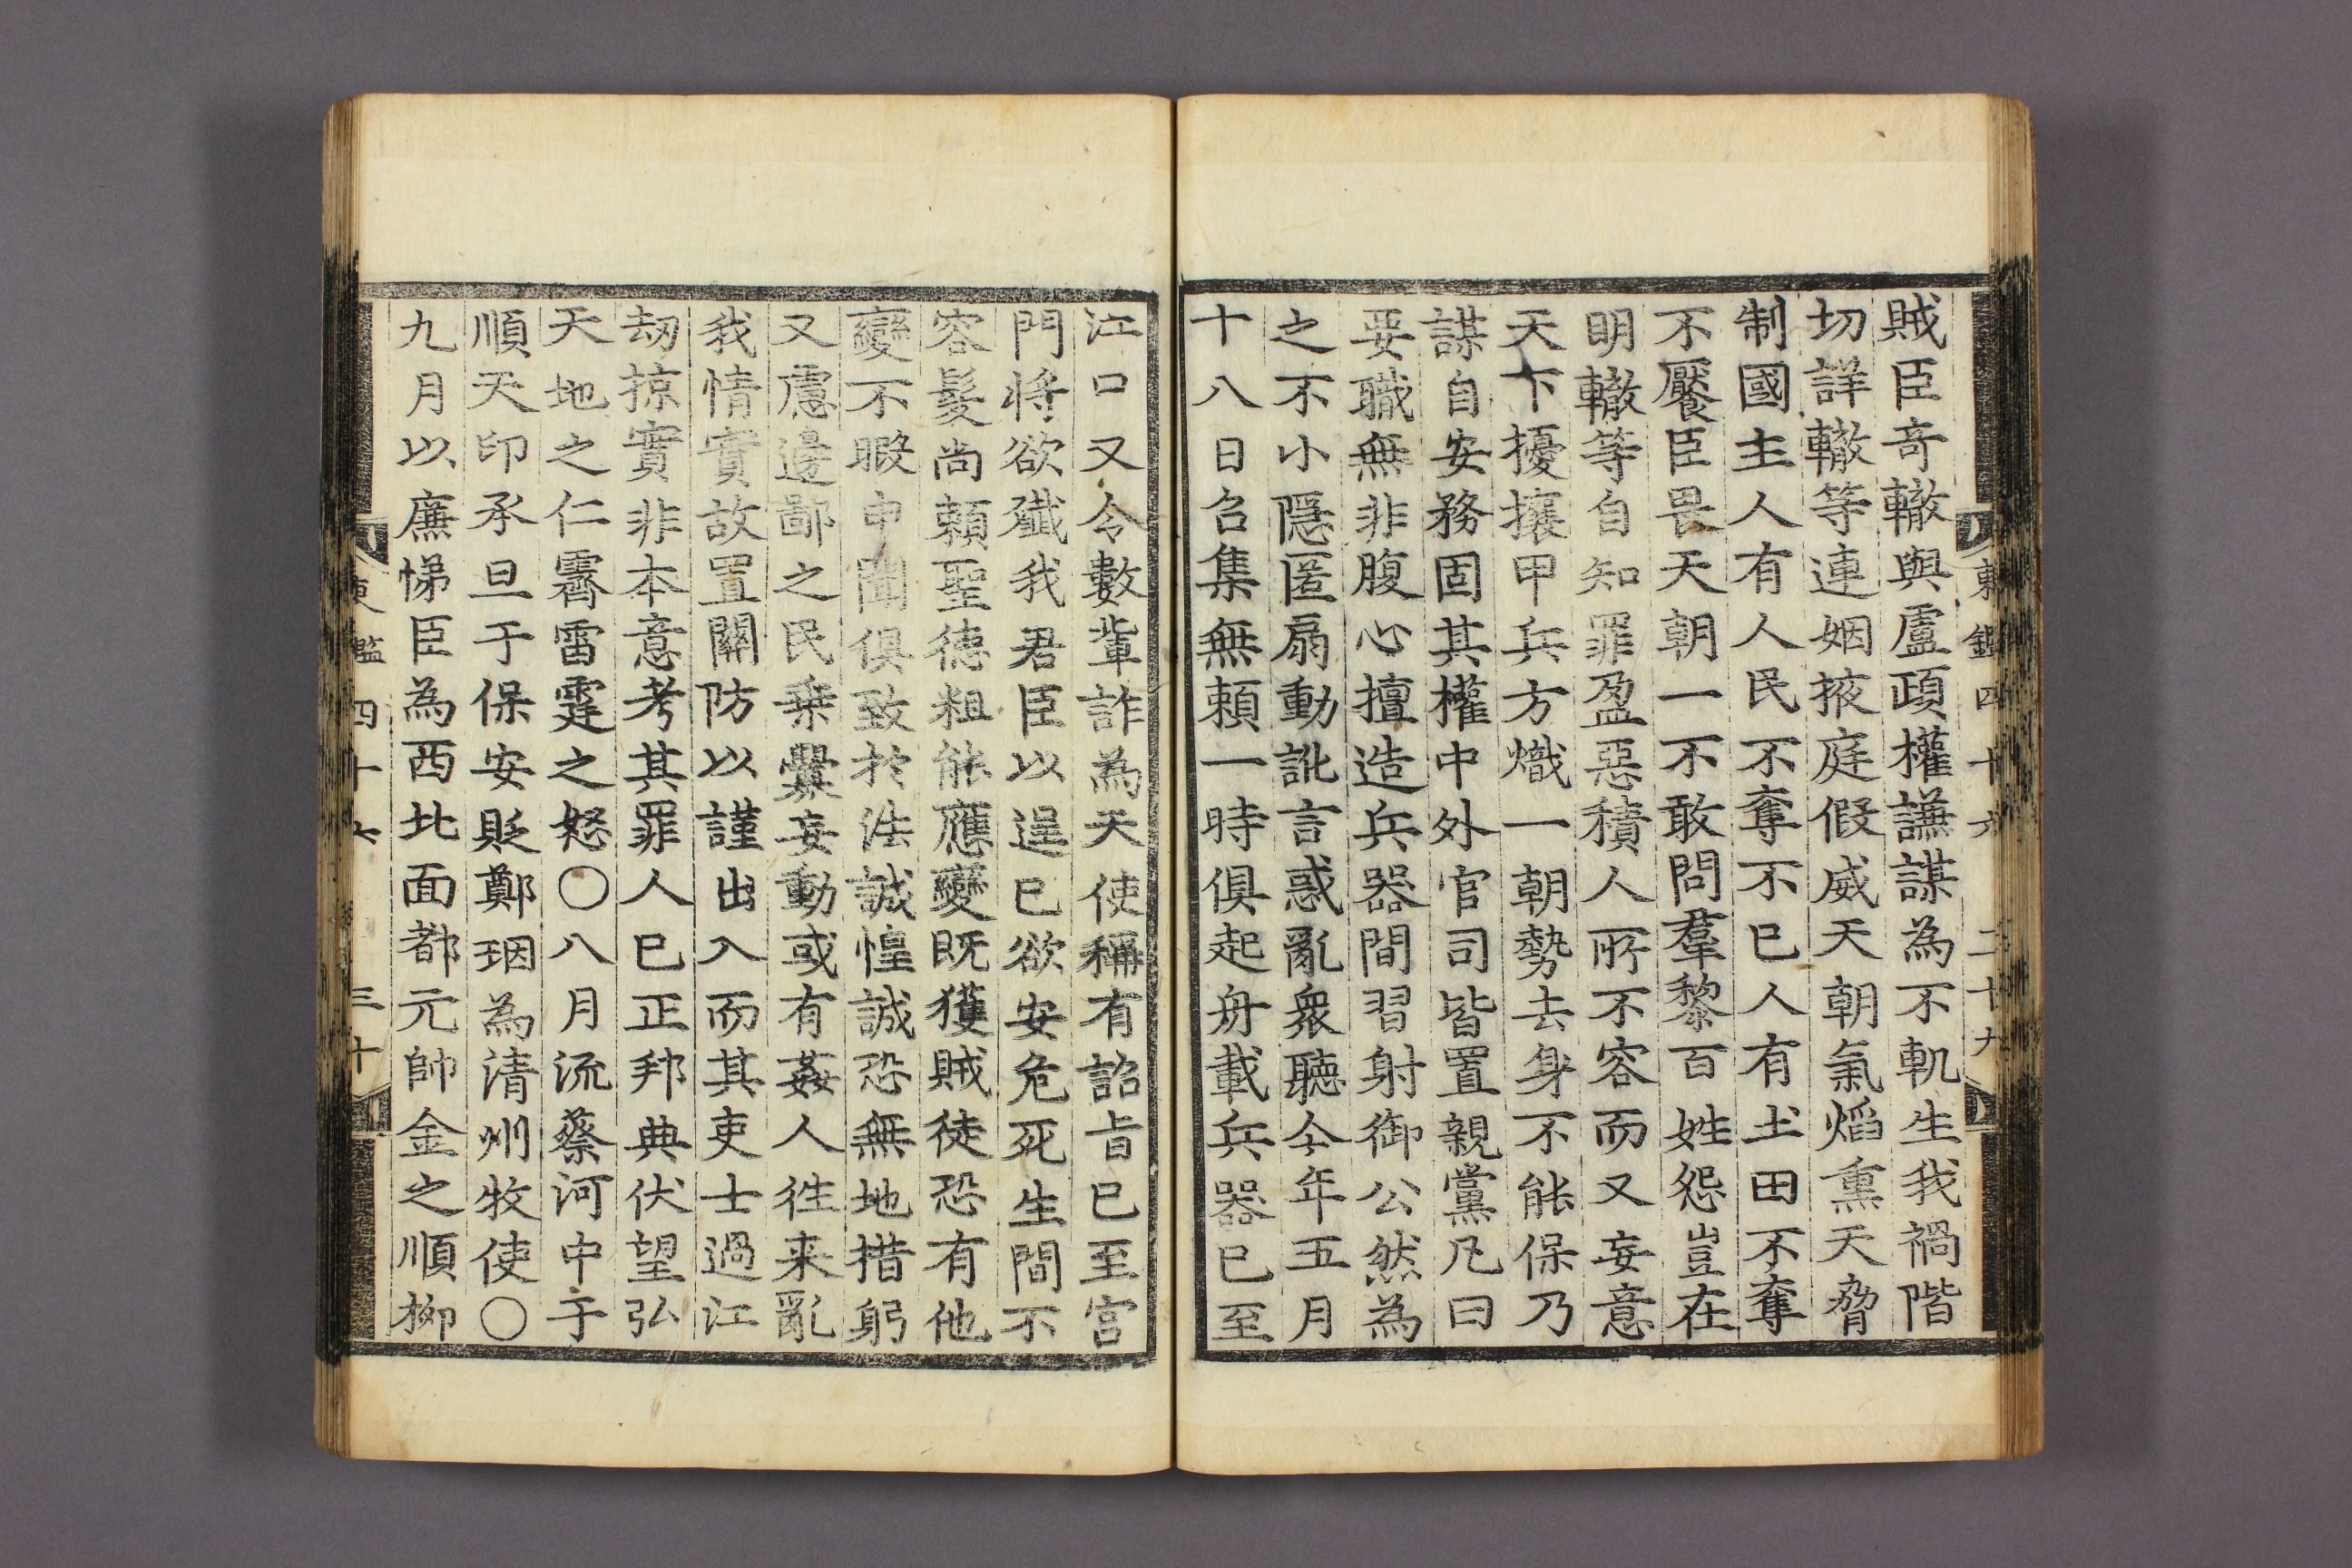 賊臣奇轍與盧頙權謙謀為不軌生我禍階
切詳轍等連姻掖庭假威天朝氣焰熏天脅
制國主人有人民不奪不已人有土田不奪
不饜臣畏天朝一不敢問羣黎百姓怨豈在
明轍等自知罪盈惡積人所不容而又妄意
天下擾攘甲兵方熾一朝勢去身不能保乃
謀自安務固其權中外官司皆置親黨凡曰
要職無非腹心擅造兵器間習射御公然為
之不小隱匿扇動訛言惑亂衆聽今年五月
十八日召集無賴一時俱起舟載兵器已至
東鑑四十六 二十九
江口又令數輩詐為天使稱有詔旨已至宮
門將欲殲我君臣以逞已欲安危死生間不
容髮尚賴聖德粗能應變既獲賊徒恐有他
變不暇申聞俱致於法誠惶誠恐無地措躬
又慮邊鄙之民乗釁妄動或有姦人徃来亂
我情實故置關防以謹出入而其吏士過江
刼掠實非本意考其罪人已正邦典伏望弘
天地之仁霽雷霆之怒〇八月流蔡河中于
順天印承旦于保安貶鄭珚為清州牧使〇
九月以廉悌臣為西北面都元帥金之順柳
東鑑四十六 三十